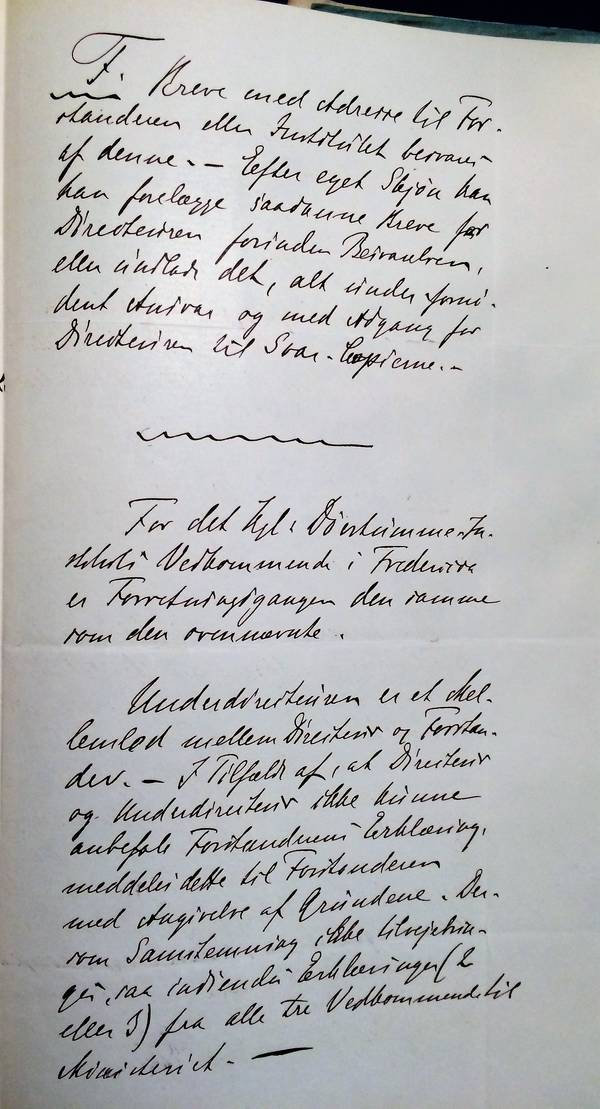 F. Breve med Adresse til For-
standeren eller Institutet besvares
af denne. — Efter eget Skjøn kan
han forelægge saadanne Breve for
Directeuren forinden Besvarelsen,
eller undlade det, alt under fornø-
dent Ansvar og med Adgang for
Directeuren til Svar-Copierne. —
For det Kgl. Døvstumme-In-
stituts Vedkommende i Fredericia
er Forretningsgangen den samme
som den ovennævnte.
Underdirecteuren er et Mel-
lemled mellem Directeur og Forstan-
der. — I Tilfælde af, at Directeur
og Underdirecteur ikke kunne
anbefale Forstanderens Erklæring,
meddeles dette til Forstanderen
med Angivelse af Grundene. Der-
som Samstemning ikke tilvejebrin-
ges, saa indsendes Erklæringer (2
eller 3) fra alle tre Vedkommende til
Ministeriet. —